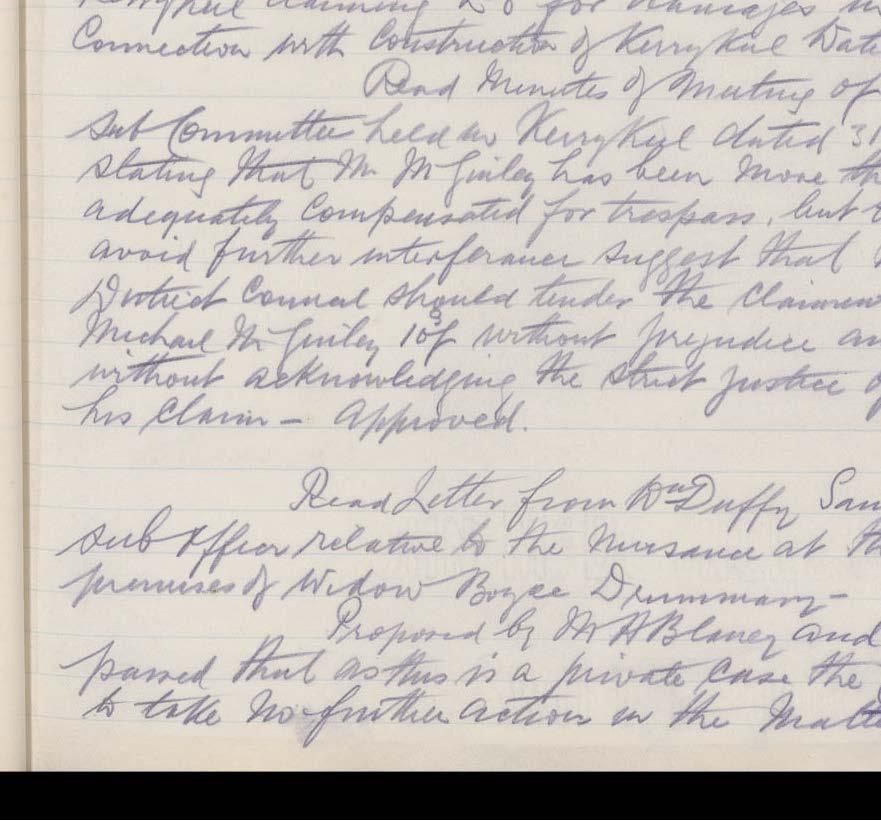 Kerrykeel claiming £8 for damages in
Connection with Construction of Kerrykeel Wate
Read Minutes of Meeting of
Sub Committee held in Kerrykeel dated 31
stating that Mr McGinley has been more th
adequately Compensated for trespass, but
avoid further interference suggest that
District Council should tender the Claiman
Michael McGinley 10s/ without prejudice an
without acknowledging the strict justice of
his Claim - Approved.
Read Letter from Wm Duffy San
Sub Officer relative to the Nuisance at th
premises of Widow Boyce Drummany -
Proposed by Mr A Blaney and
passed that as this is a private Case the
to take No further action in the Matte